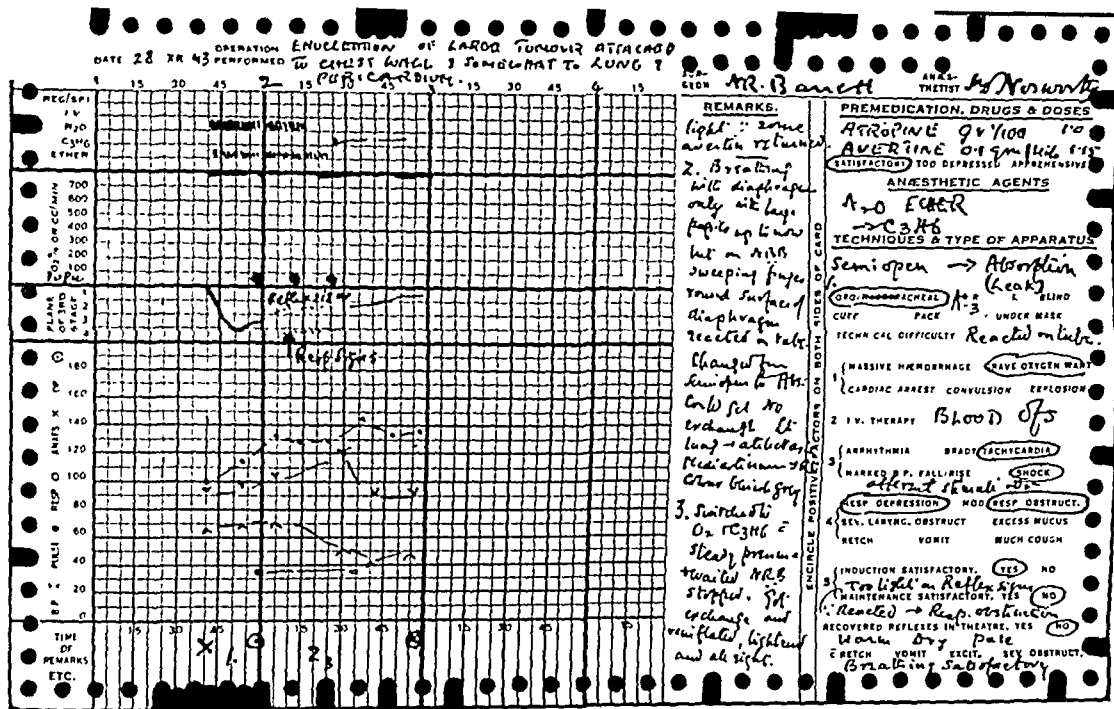 DATE 28 XII 43 OPERATION PERFORMED ENUCLEATION OF LARGE TUMOUR ATTACHED
TO CHEST WALL & SOMEWHAT TO LUNG &
PERICARDIUM.
SURGEON
ANÆSTHETIST
15 30 45 2 15 30 45 3 15 30 45 4 15 30 45 15
REG/SPI
I.V.
N2O
C3H6
ETHER
700
600
500
400
300
200
100
PLANE OF 3RD STAGE
1
2
3
4
Resp Signs
180
160
140
120
100
80
60
40
20
0
B P PULSE RESP ANÆS X OP
15 30 45 15 30 45 15 30 45 15 30 45 15
TIME
OF
REMARKS
ETC.
X 1. 2 3
REMARKS.
light some
avertin returned.
2. Breathing
with diaphragm
only with large
pupils up to now
but on ARB
sweeping finger
round surface of
diaphragm
reacted on tube
Changed from
semiopen to Abs.
Could get no
exchange
lung → atelectasis
3. Switched to
O2 C3H6
steady pressure
+ waited ARB
stopped. Got
exchange and
reinflated, lightened
and all right.
ENCIRCLE POSITIVE FACTORS ON BOTH SIDES OF CARD
PREMEDICATION, DRUGS & DOSES
ATROPINE gr 1/100
AVERTINE 0.1 gm/kilo
SATISFACTORY TOO DEPRESSED APPREHENSIVE
ANÆSTHETIC AGENTS
ETHER
→ C3H6
TECHNIQUES & TYPE OF APPARATUS
Semiopen → Absorption
(Leak)
BLIND
CUFF PACK UNDER MASK
TECHNICAL DIFFICULTY Reacted on tube.
1 { MASSIVE HÆMORRHAGE GRAVE OXYGEN WANT
CARDIAC ARREST CONVULSION EXPLOSION
2 I.V. THERAPY BLOOD
3 { ARRHYTHMIA BRADY TACHYCARDIA
MARKED B.P. FALL/RISE SHOCK
afferent stimuli
RESP DEPRESSION MOD RESP OBSTRUCT.
4 { SEV. LARYNG. OBSTRUCT EXCESS MUCUS
RETCH VOMIT MUCH COUGH
5 { INDUCTION SATISFACTORY. YES NO
Too light on Reflex signs
MAINTENANCE SATISFACTORY. YES NO
Reacted → Resp. obstruction
RECOVERED REFLEXES IN THEATRE. YES NO
Warm Dry Pale
RETCH VOMIT EXCIT. SEV OBSTRUCT.
Breathing Satisfactory